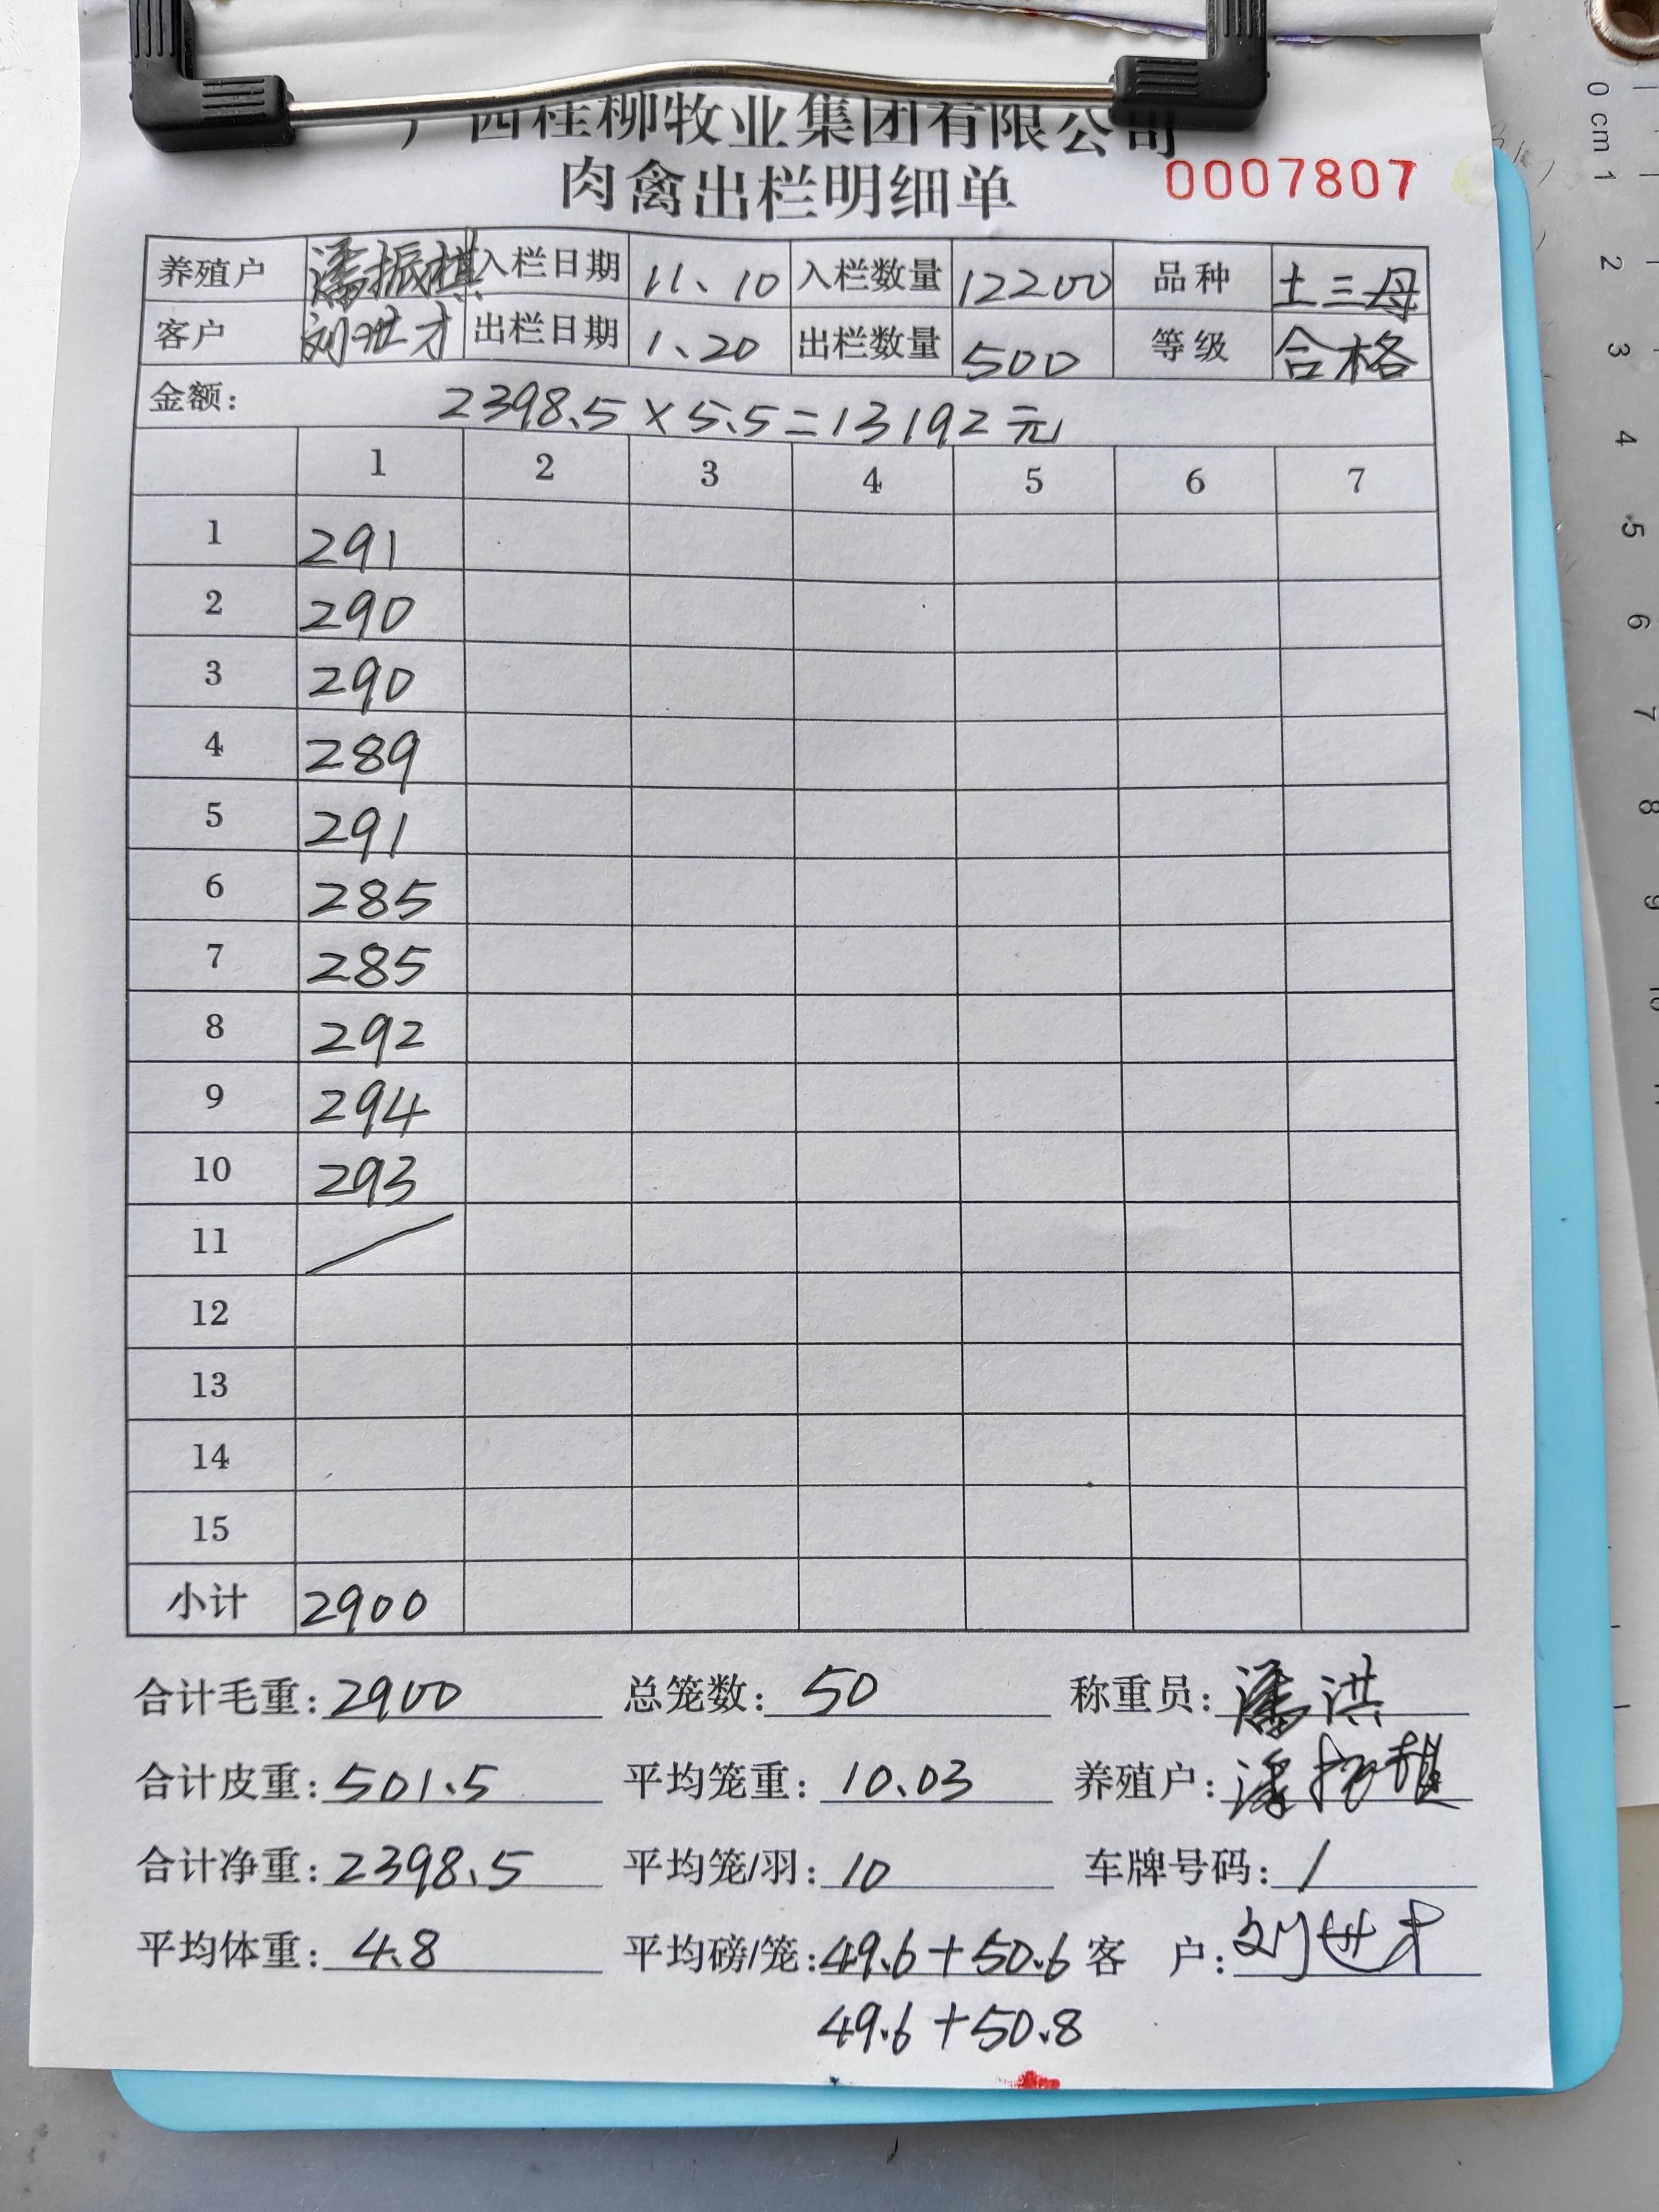 广西桂柳牧业集团有限公司
肉禽出栏明细单 0007807
养殖户 潘振棋 入栏日期 11、10 入栏数量 12200 品种 土三母
客户 刘世才 出栏日期 1、20 出栏数量 500 等级 合格
金额: 2398.5×5.5=13192元
1 2 3 4 5 6 7
1 291
2 290
3 290
4 289
5 291
6 285
7 285
8 292
9 294
10 293
11
12
13
14
15
小计 2900
合计毛重: 2900 总笼数: 50 称重员: 潘洪
合计皮重: 501.5 平均笼重: 10.03 养殖户:
合计净重: 2398.5 平均笼/羽: 10 车牌号码: /
平均体重: 4.8 平均磅/笼: 49.6+50.6 客 户: 刘世才
49.6+50.8
0 cm 1
2
3
4
5
6
7
8
9
10